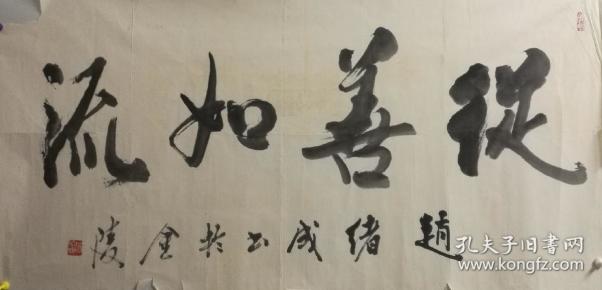 從善如流
趙緒成書於金陵
孔夫子旧书网
www.kongfz.com